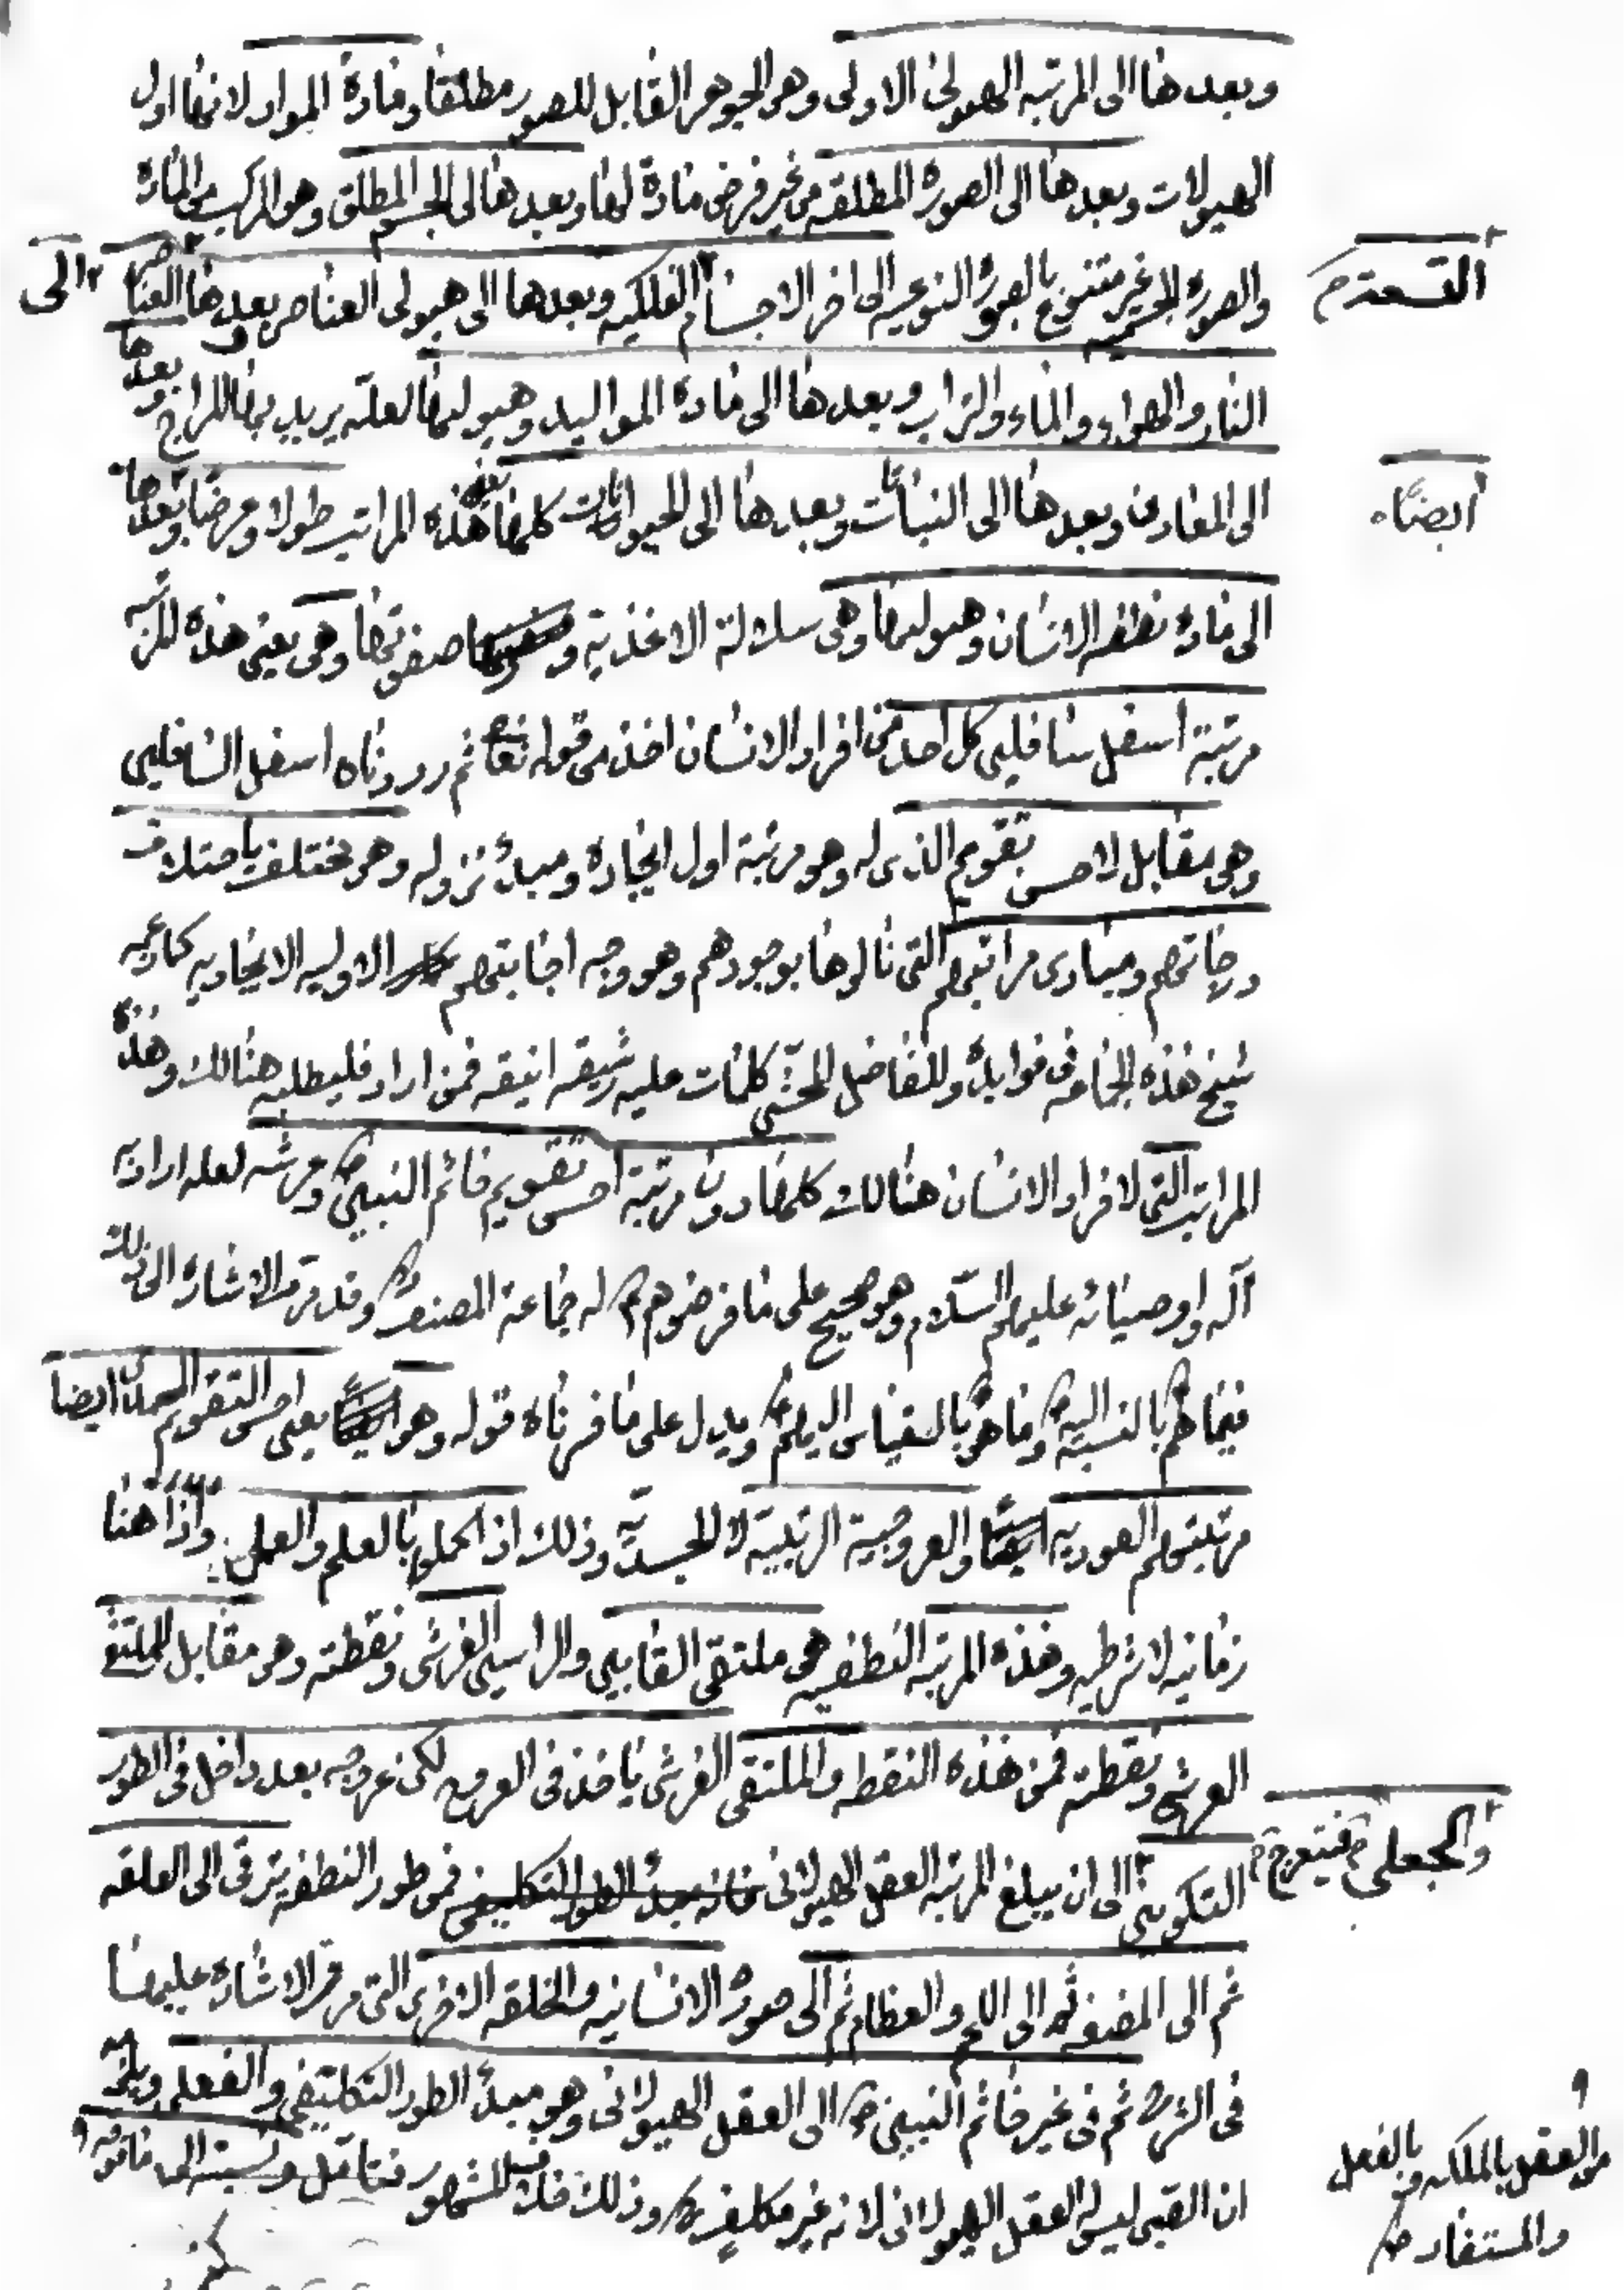 وبعدها الى المرتبه الهيولى الاولى وهو الجوهر القابل للصور مطلقا ومادة المواد لانها اول
الهيولات وبعدها الى الصوره المطلقه من غير فرض مادة لها وبعدها الى الجسم المطلق وهو المركب من الماده
والصوره الجسميه غير متنوع بالصوره النوعيه الى اخر الاجسام الفلكيه وبعدها الى هيولى العناصر وبعدها الى العناصر
التسعة م
النار والهواء والماء والتراب وبعدها الى مادة المواليد وهيوليها لعله يريد بها المزاج وبعدها
الى المعادن وبعدها الى النباتات وبعدها الى الحيوانات كلها بعد هذه المراتب طولا وعرضا وبعدها
ايضا
الى مادة نطفه الانسان وهيوليها وهى سلالة الاغذية و صفوتها وهى يعنى هذه المرتبه
مرتبة اسفل سافلين كل احد من افراد الانسان اخذ من قوله تعا ثم رددناه اسفل السافلين
وهى مقابل لاحسن تقويم الذى له وهو مرتبة اول ايجاده ومبدء نزوله وهو مختلف باختلاف
درجاتهم ومبادى مراتبهم التى نالوها بوجودهم وهو وجه اجابتهم الاوليه الايجاديه كما وجه
شيخ هذه الجماعه فى فوايده وللفاضل المحشى كلمات عليه رشيقه انيقه فمن اراد فليطلبه هنالك وهذه
المراتب التى لافراد الانسان هنالك كلها دون مرتبة احسن تقويم خاتم النبيين ص وعرشه لعله اراد به
آله اوصيائه عليهم السلام وهو صحيح على ما فرضوهم له جماعة المصنف وقد مر الاشاره الى ذلك
فيما هم بالنسبة اليه ص وما هو بالقياس اليهم ويدل على ما فسرناه قوله وهو يعنى احسن التقويم ايضا
مرتبتهم العوديه والعروجية الرتبية لا الجسدية وذلك اذا كملوا بالعلم والعمل واذا هنا
زمانيه لا شرطيه وهذه المرتبه النطفيه هى ملتقى القابين والراسين الفرشى ونقطته وهو مقابل للملتقى
العرشى ونقطته فمن هذه النقطه والملتقى الفرشى ياخذ فى العروج لكن عروجه بعد داخل فى الطور
التكوينى الى ان يبلغ المرتبه العقل الهيولانى فانه مبدء الطور التكليفى فمن طور النطفه يترقى الى العلقه
والجعلى م فيتعرج م
ثم الى المضغه ثم الى اللحم والعظام ثم الى صورة الانسانيه والخلقه الاخرى التى مر الاشاره عليها
فى الشرح ثم فى غير خاتم النبيين ص الى العقل الهيولانى وهو مبدء الطور التكليفى والفعلى ويلزمه
ان الصبى ليس له العقل الهيولانى لانه غير مكلف وذلك خلاف المشهور فتامل ونسبته الى ما فوقه
من العقل بالملكه و بالفعل
والمستفاد ص